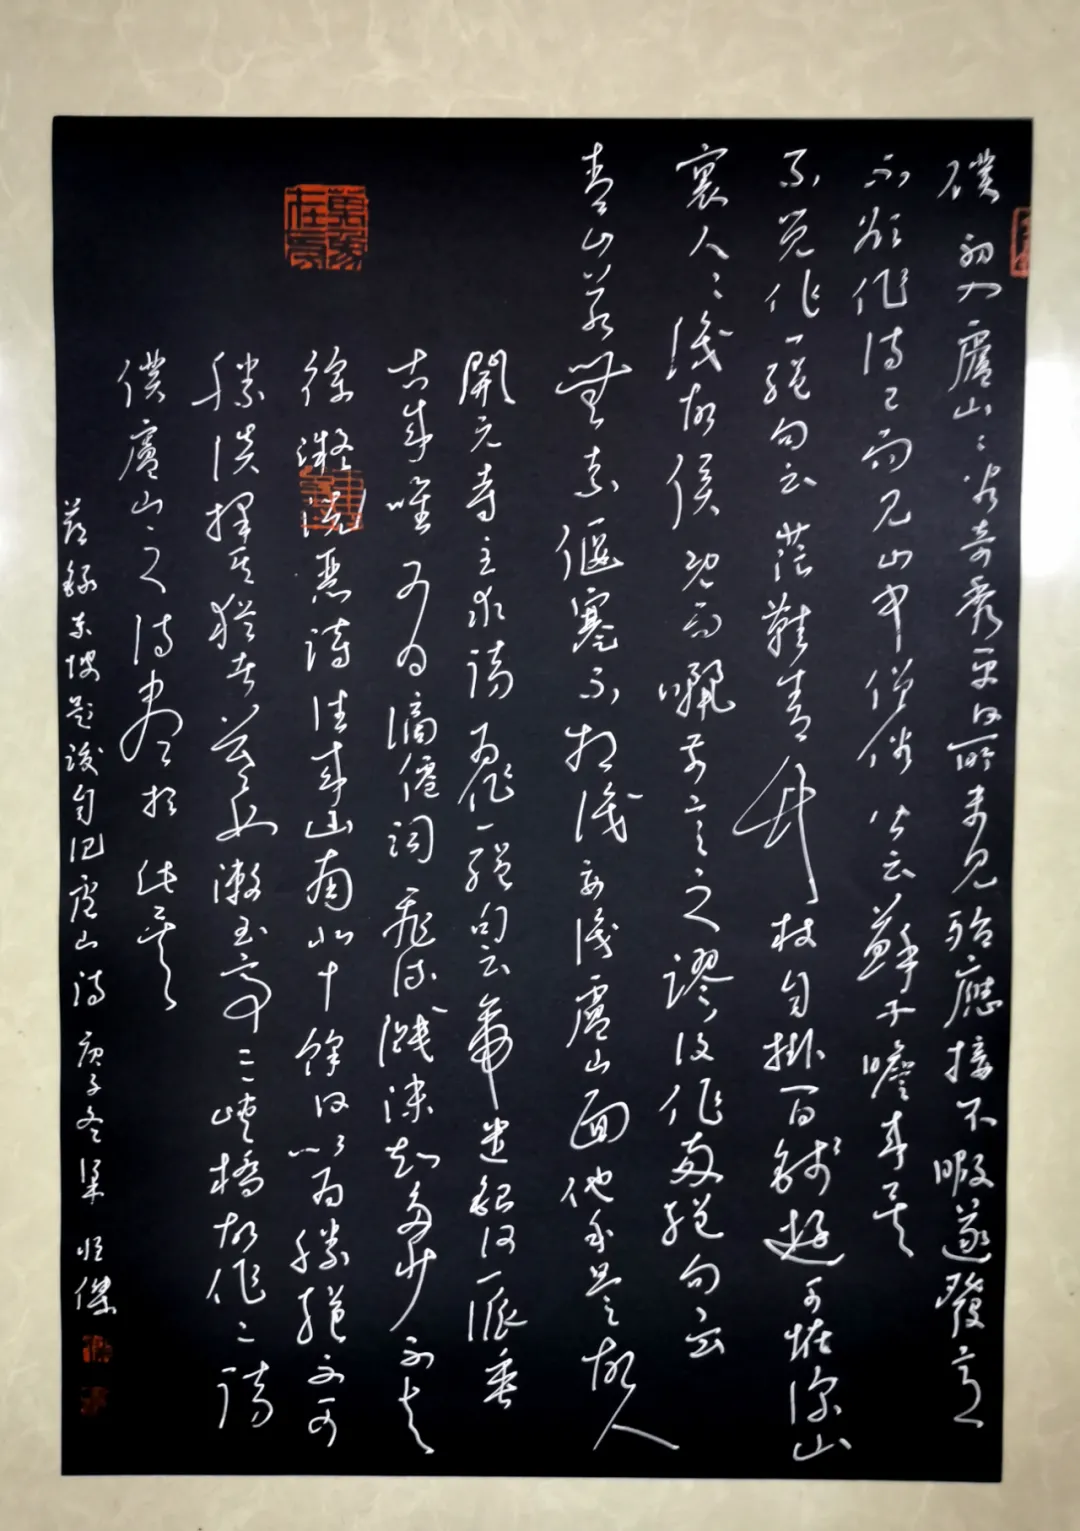 僕初入廬山山谷奇秀平日所未見殆應接不暇遂發意
不欲作詩已而見山中僧俗皆云蘇子瞻來矣
不覺作一絕句云芒鞵青竹杖自掛百錢遊可怪深山
裏人人識故侯既而哂前言之謬復作兩絕句云
青山若無素偃蹇不相識要識廬山面他年是故人
開元寺主求詩為作一絕句云帝遣銀河一派垂
古來唯有謫僊詞飛流濺沫知多少不與
徐凝洗惡詩往來山南北十餘日以為勝絕不可
勝談擇其猶者莫如漱玉亭三峽橋故作二詩
僕廬山之詩盡於此矣
節錄東坡題跋自記廬山詩 庚子冬 梁恒傑
萬象在旁